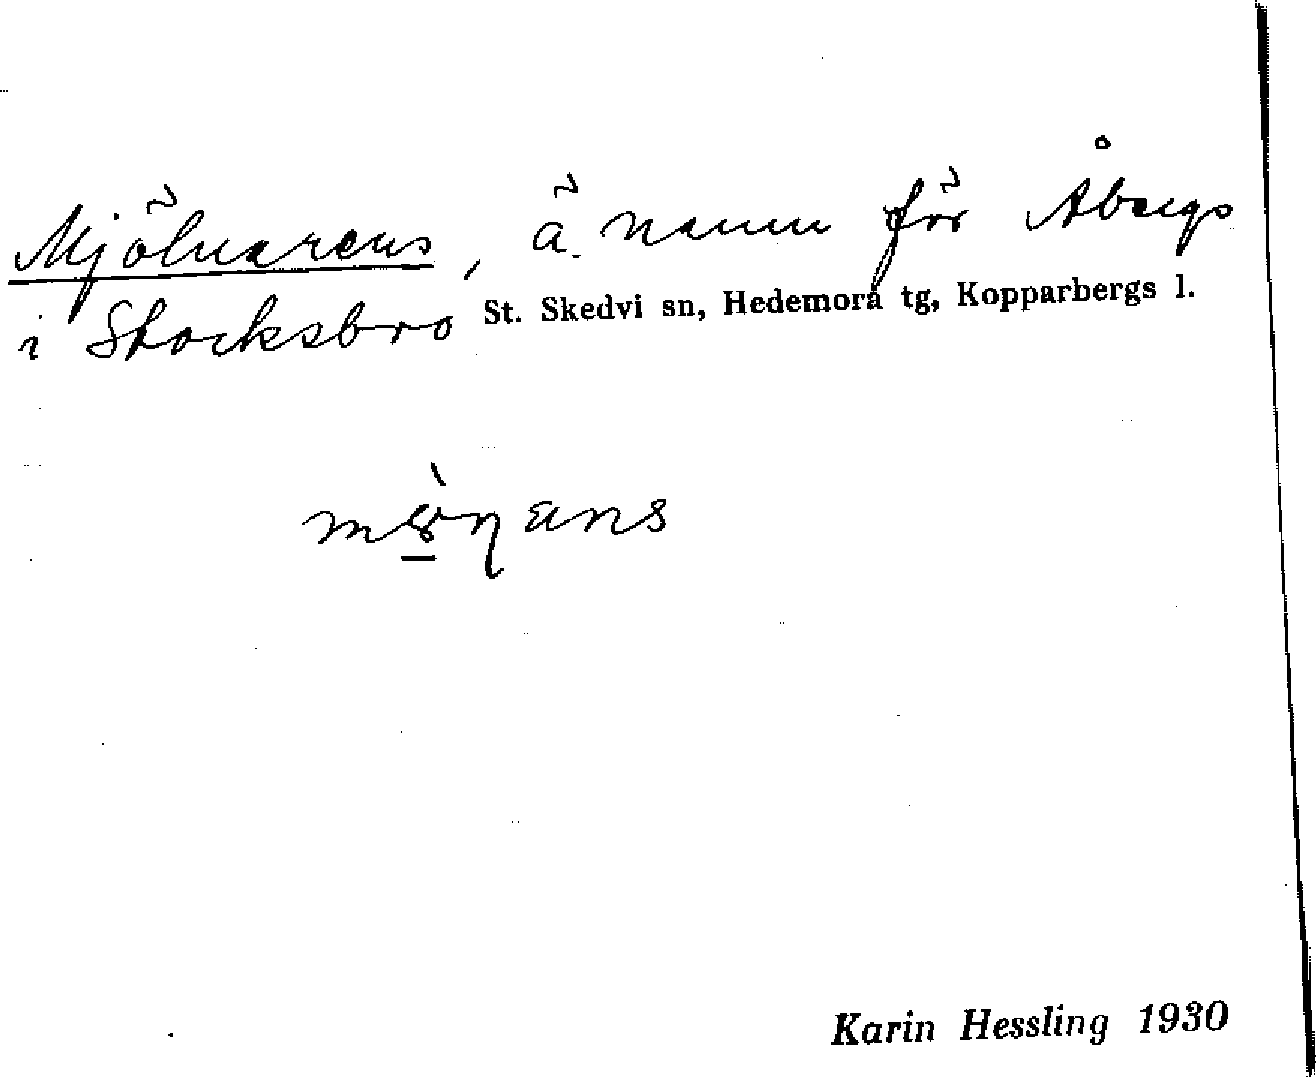 Mjölnarens, ä. namn för Åbergs
i Stocksbro St. Skedvi sn, Hedemora tg, Kopparbergs l.
Karin Hessling 1930